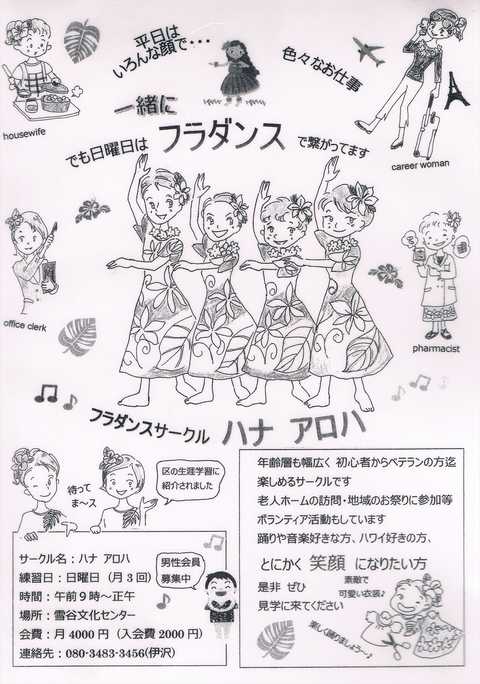 平日は
いろんな顔で・・・
色々なお仕事
housewife
career woman
一緒に
でも日曜日は フラダンス で繋がってます
office clerk
pharmacist
フラダンスサークル ハナ アロハ
待って
ま〜ス
区の生涯学習に
紹介されました
サークル名：ハナ アロハ
練習日：日曜日（月３回）
時間：午前９時〜正午
場所：雪谷文化センター
会費：月4000円（入会費2000円）
連絡先：080-3483-3456(伊沢)
男性会員
募集中
年齢層も幅広く 初心者からベテランの方迄
楽しめるサークルです
老人ホームの訪問・地域のお祭りに参加等
ボランティア活動もしています
踊りや音楽好きな方、ハワイ好きの方、
とにかく 笑顔 になりたい方
是非 ぜひ
見学に来てください
素敵で
可愛い衣装♪
楽しく踊りましょう〜♪